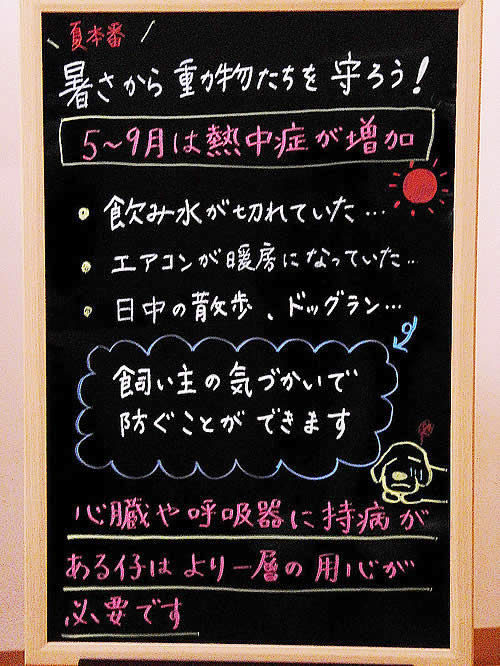 夏本番
暑さから動物たちを守ろう!
5~9月は熱中症が増加
・飲み水が切れていた…
・エアコンが暖房になっていた…
・日中の散歩、ドッグラン…
飼い主の気づかいで
防ぐことができます
心臓や呼吸器に持病が
ある仔はより一層の用心が
必要です